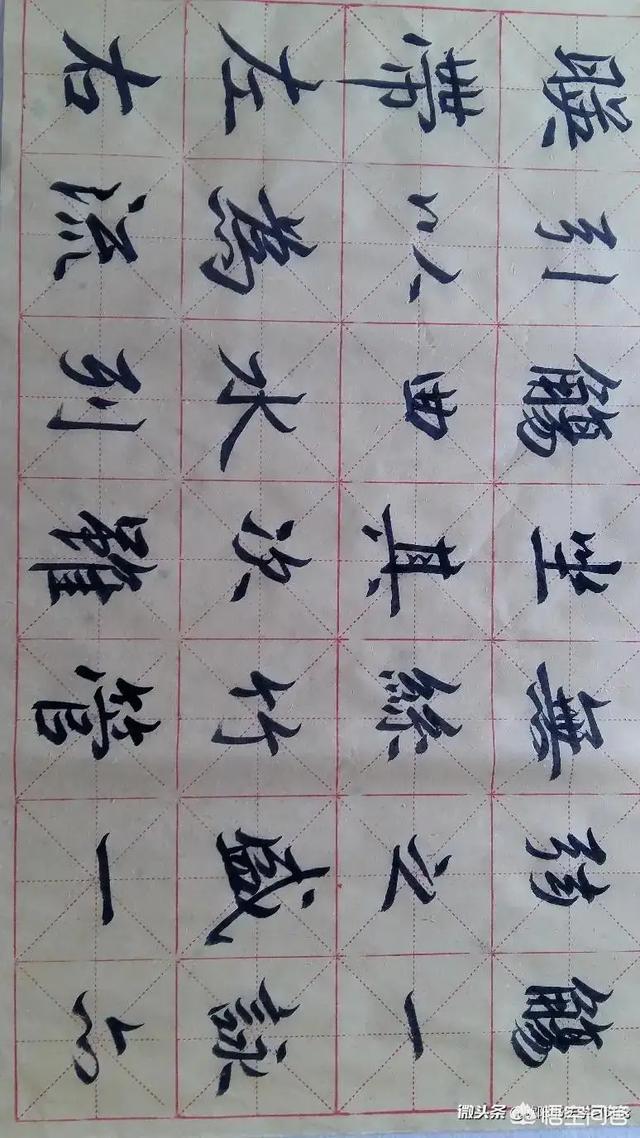 暎帶左右
引以為流
觴曲水列
坐其次雖
無絲竹管
弦之盛一
觴一詠亦
微头条
悟空问答